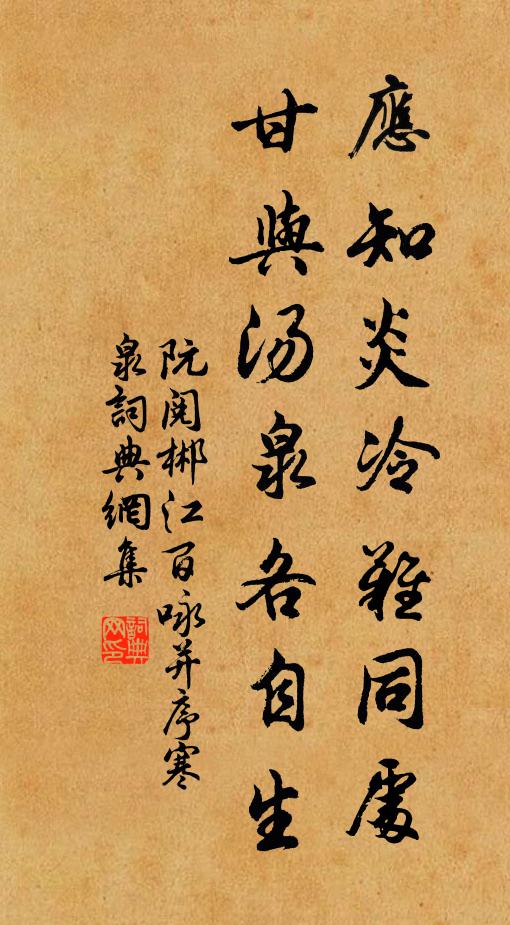 應知炎冷難同處
甘與湯泉各自生
阮閱郴江百咏并序寒
泉詞典網集
詞典
网印